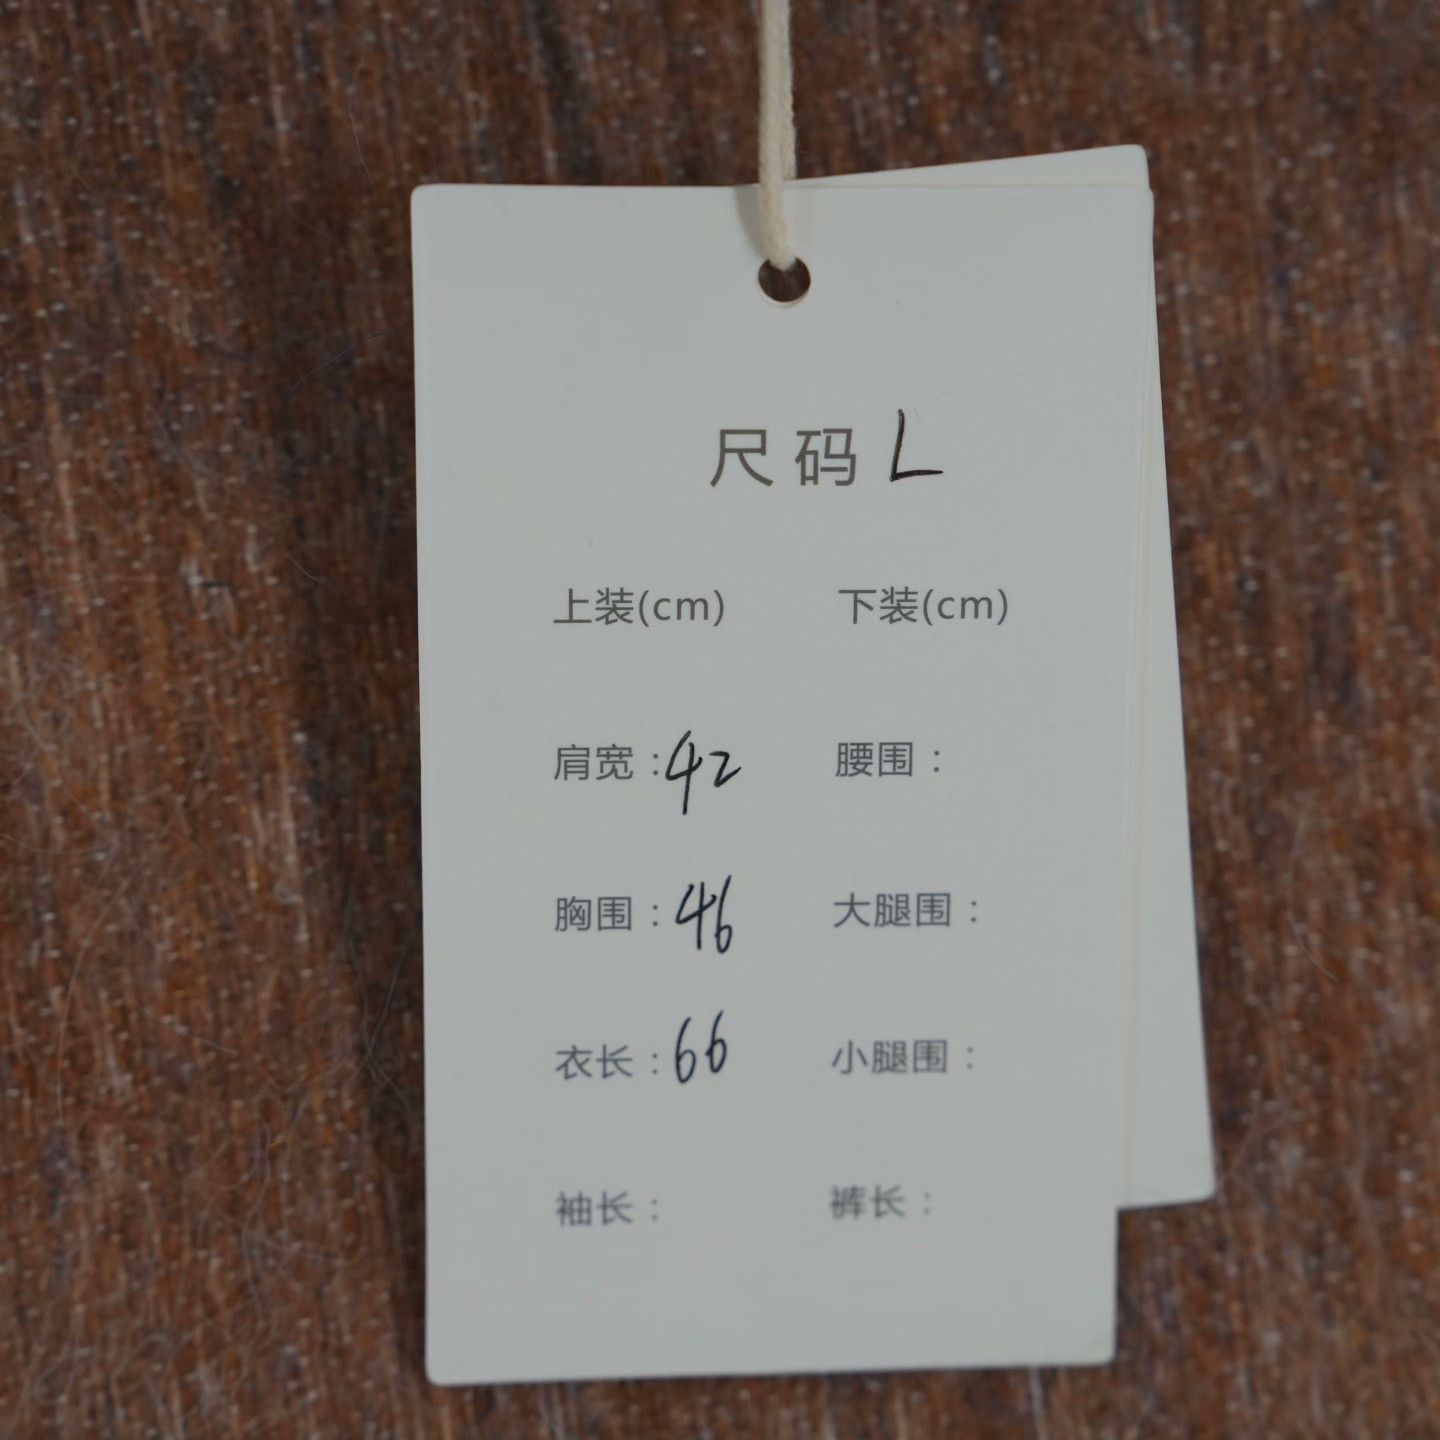 尺码 L
上装(cm) 下装(cm)
肩宽：42 腰围：
胸围：46 大腿围：
衣长：66 小腿围：
袖长： 裤长：